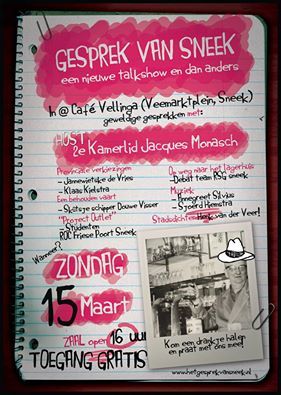 GESPREK VAN SNEEK
een nieuwe talkshow en dan anders
In @ Café Vellinga (Veemarktplein, Sneek)
geweldige gesprekken met:
HOST
2e Kamerlid Jacques Monasch
Provinciale verkiezingen
- Jannewietske de Vries
- Klaas Kielstra
Een behouden vaart
- Skûtsje schipper Douwe Visser
"Protect Outlet"
- Studenten
ROC Friese Poort Sneek
Op weg naar het lagerhuis
- Debat team RSG Sneek
Muziek
- Annegreet Silvius
- Sjoerd Hiemstra
Stadsdichter Henk van der Veer!
Wanneer?
ZONDAG
15 Maart
ZAAL open 16 uur
TOEGANG GRATIS
Kom een drankje halen
en praat met ons mee!
www.hetgesprekvansneek.nl